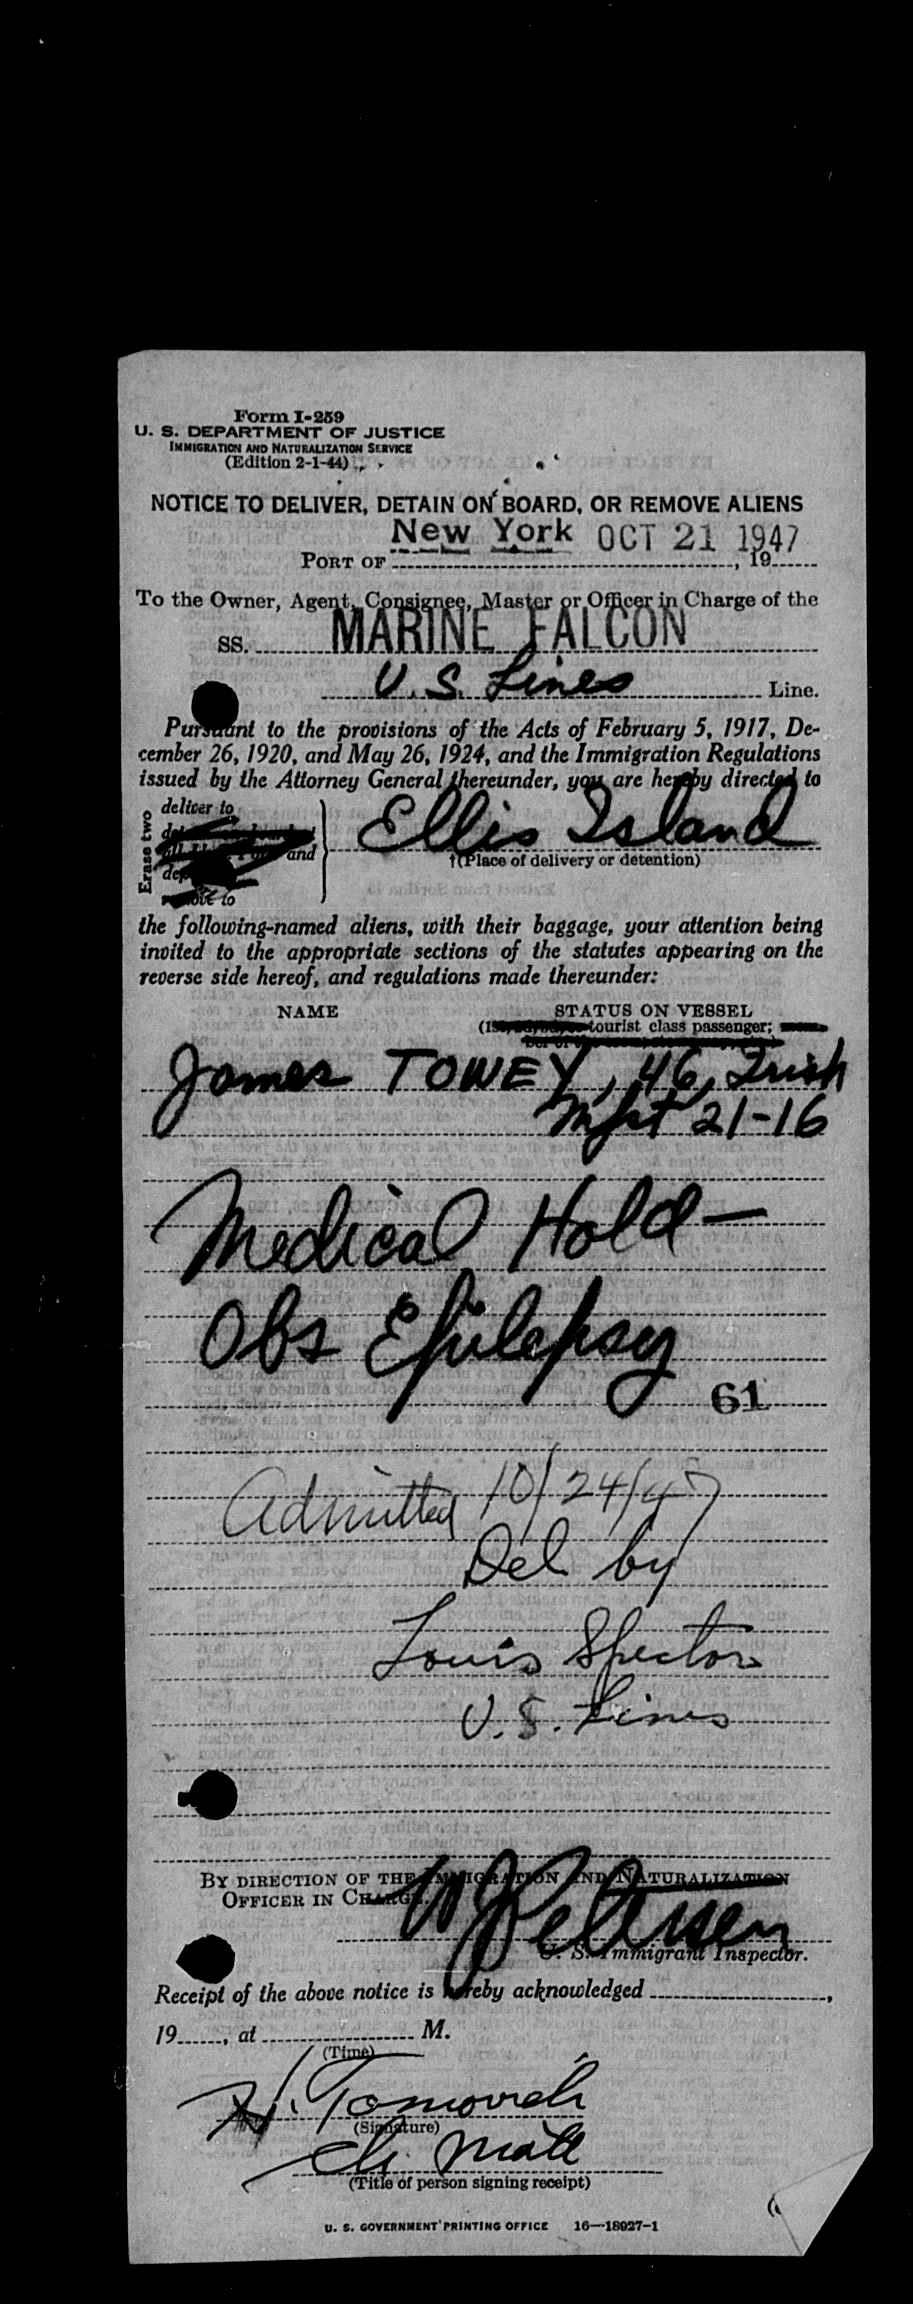 Form I-259
U. S. DEPARTMENT OF JUSTICE
IMMIGRATION AND NATURALIZATION SERVICE
(Edition 2-1-44)
NOTICE TO DELIVER, DETAIN ON BOARD, OR REMOVE ALIENS
PORT OF New York OCT 21 1947, 19
To the Owner, Agent, Consignee, Master or Officer in Charge of the
SS. MARINE FALCON
U.S. Lines Line.
Pursuant to the provisions of the Acts of February 5, 1917, De-
cember 26, 1920, and May 26, 1924, and the Immigration Regulations
issued by the Attorney General thereunder, you are hereby directed to
Erase two
deliver to
and
to
Ellis Island
†(Place of delivery or detention)
the following-named aliens, with their baggage, your attention being
invited to the appropriate sections of the statutes appearing on the
reverse side hereof, and regulations made thereunder:
NAME STATUS ON VESSEL
tourist class passenger;
James TOWEY, 46, Irish
Mfst 21-16
Medical Hold—
Obs Epilepsy
61
Admitted 10/24/47
Del by
Louis Spector
U.S. Lines
BY DIRECTION OF THE IMMIGRATION AND NATURALIZATION
OFFICER IN CHARGE.
W Petersen
U. S. Immigrant Inspector.
Receipt of the above notice is hereby acknowledged ,
19 , at M.
(Time)
H. Tomovich
(Signature)
(Title of person signing receipt)
U. S. GOVERNMENT PRINTING OFFICE 16—18927-1